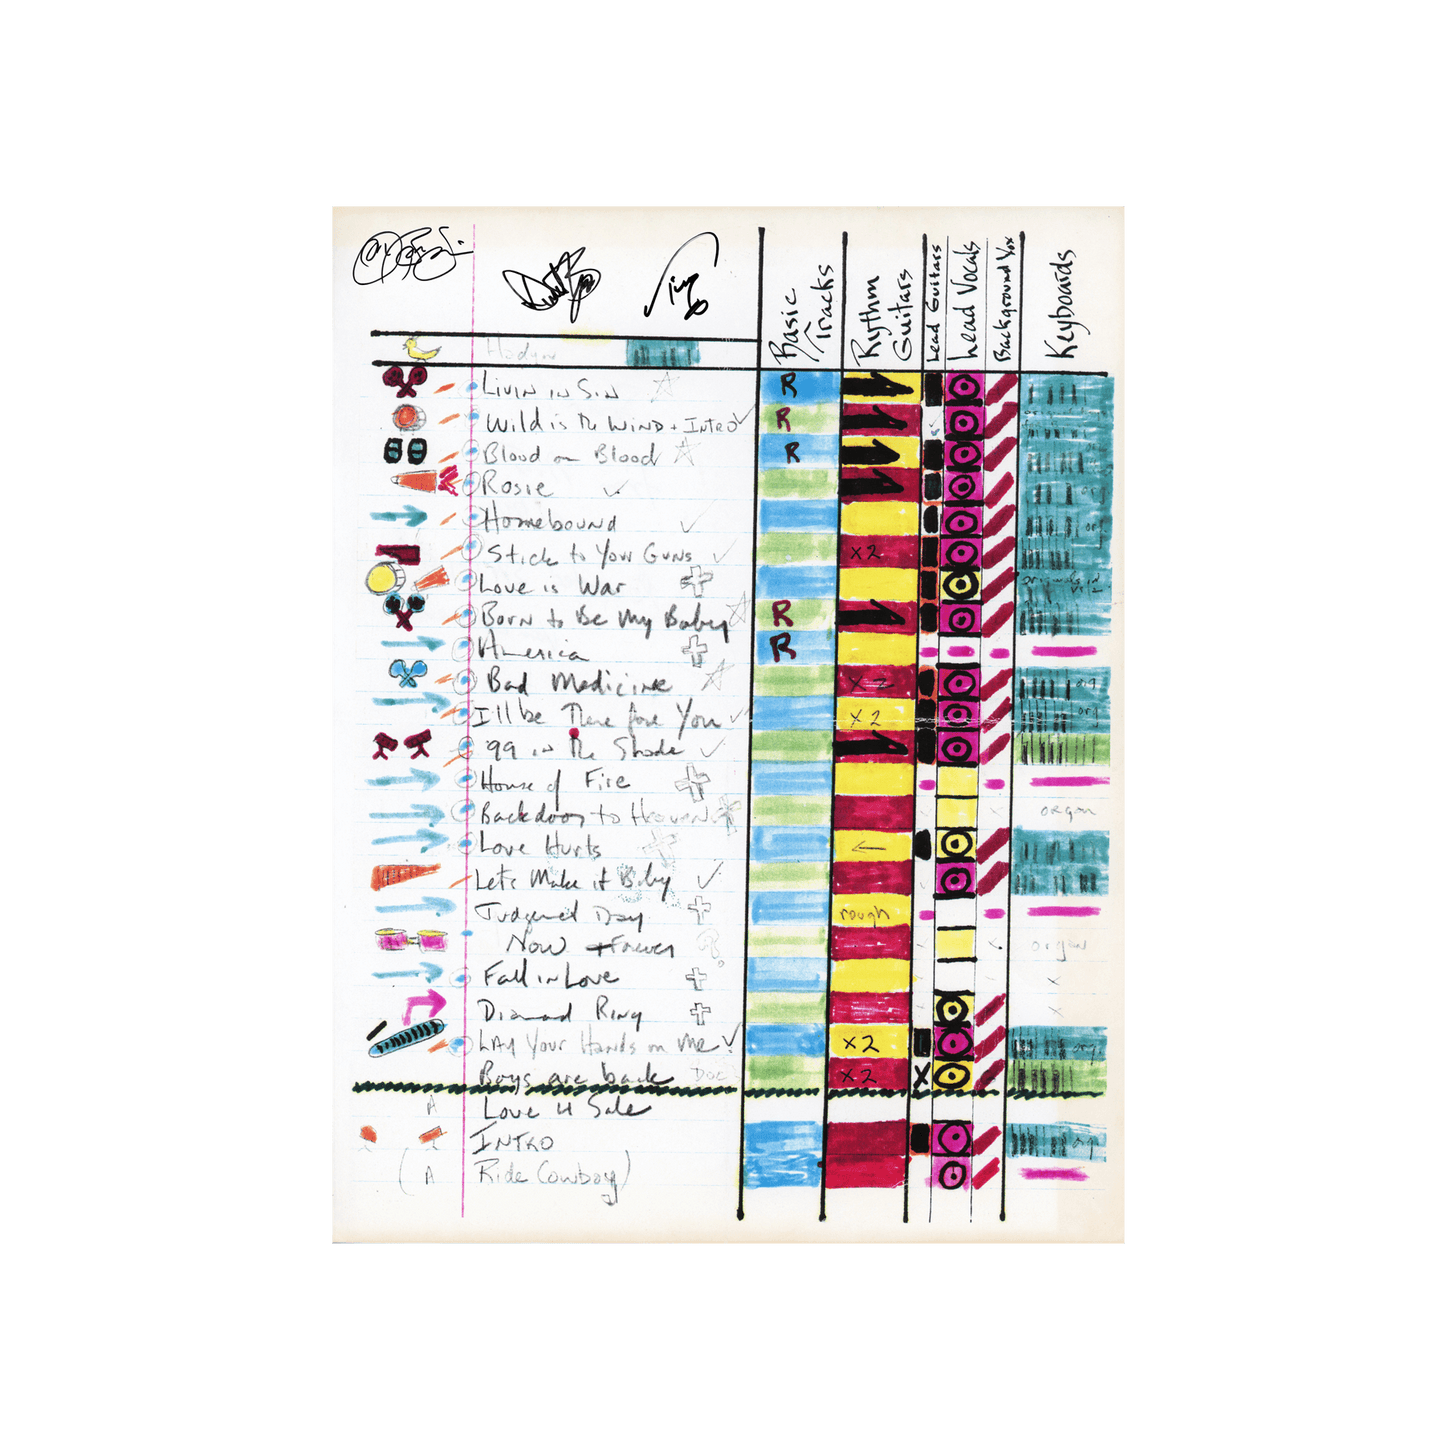 Tico
Basic Tracks
Rythm Guitars
Lead Guitars
Lead Vocals
Background Vox
Keyboards
Livin in Sin R
Wild is the Wind + Intro R
Blood on Blood R
Rosie org
Homebound org
Stick to Your Guns x2
Love is War originals in
Born to Be My Baby R
America R
Bad Medicine x2 org
I'll be There fore You x2 org
99 in the Shade
House of Fire
Backdoor to Heaven organ
Love Hurts ←
Let's Make it Baby
Judgement Day rough
Now + Forever ? organ
Fall in Love x x
Diamond Ring x
Lay Your Hands on Me x2 org
Boys are back DOC x2 X
A Love 4 Sale
INTRO org
(A Ride Cowboy)